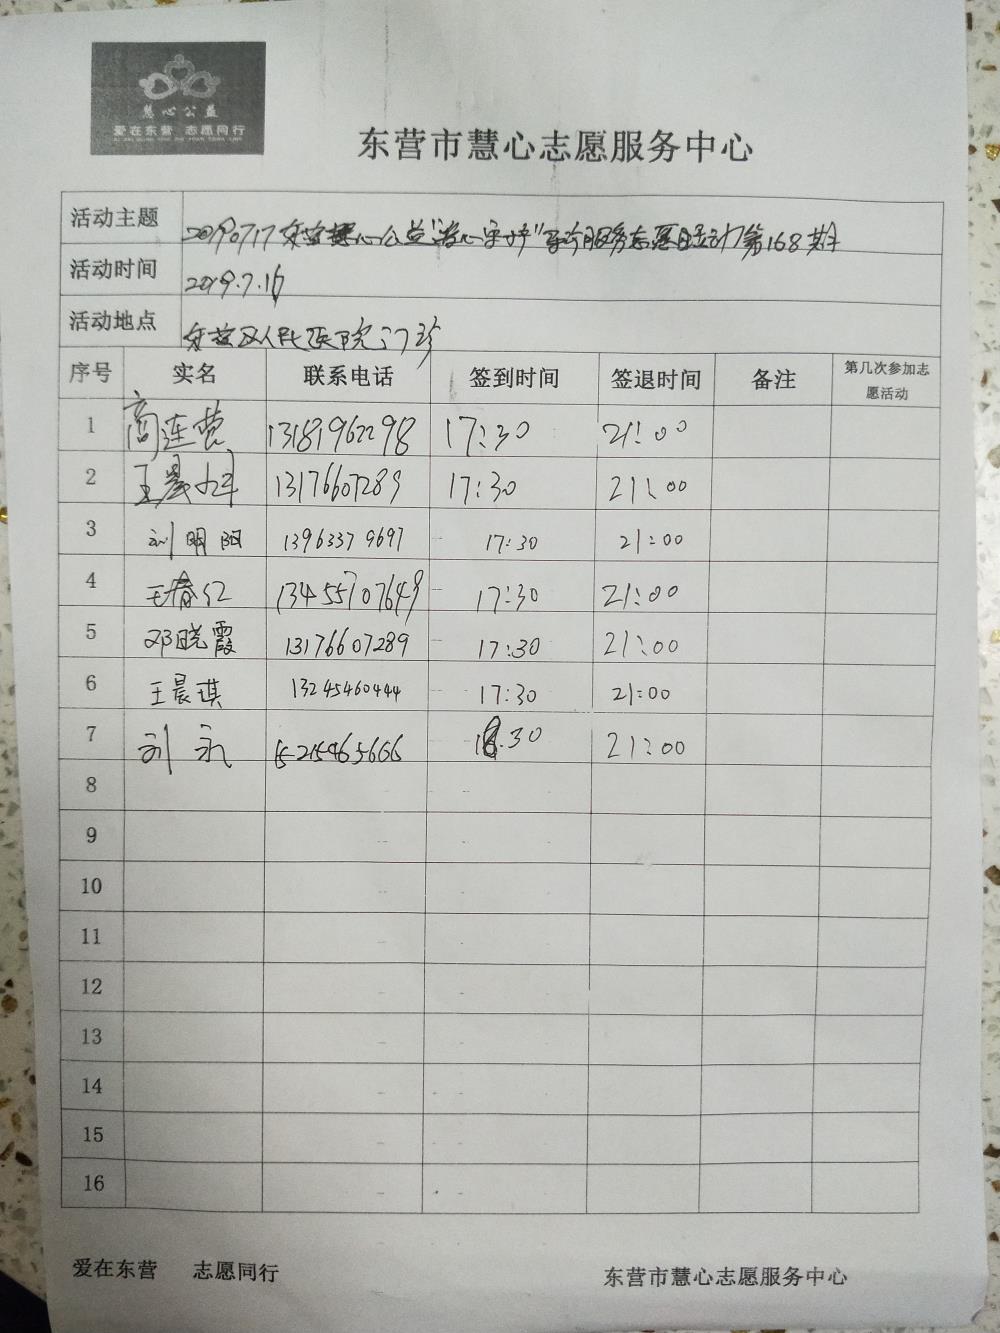 慧心公益
爱在东营 志愿同行
东营市慧心志愿服务中心
活动主题 20190717东营慧心公益 服务志愿活动第168期
活动时间 2019.7.16
活动地点 东营区人民医院门诊
序号 实名 联系电话 签到时间 签退时间 备注 第几次参加志愿活动
1 高连营 13181962298 17:30 21:00
2 王 13176607289 17:30 21:00
3 刘明阳 13963379697 17:30 21:00
4 王春仁 13455707649 17:30 21:00
5 邓晓霞 13176607289 17:30 21:00
6 王晨琪 13245460444 17:30 21:00
7 刘永 15215465666 18:30 21:00
8
9
10
11
12
13
14
15
16
爱在东营 志愿同行 东营市慧心志愿服务中心